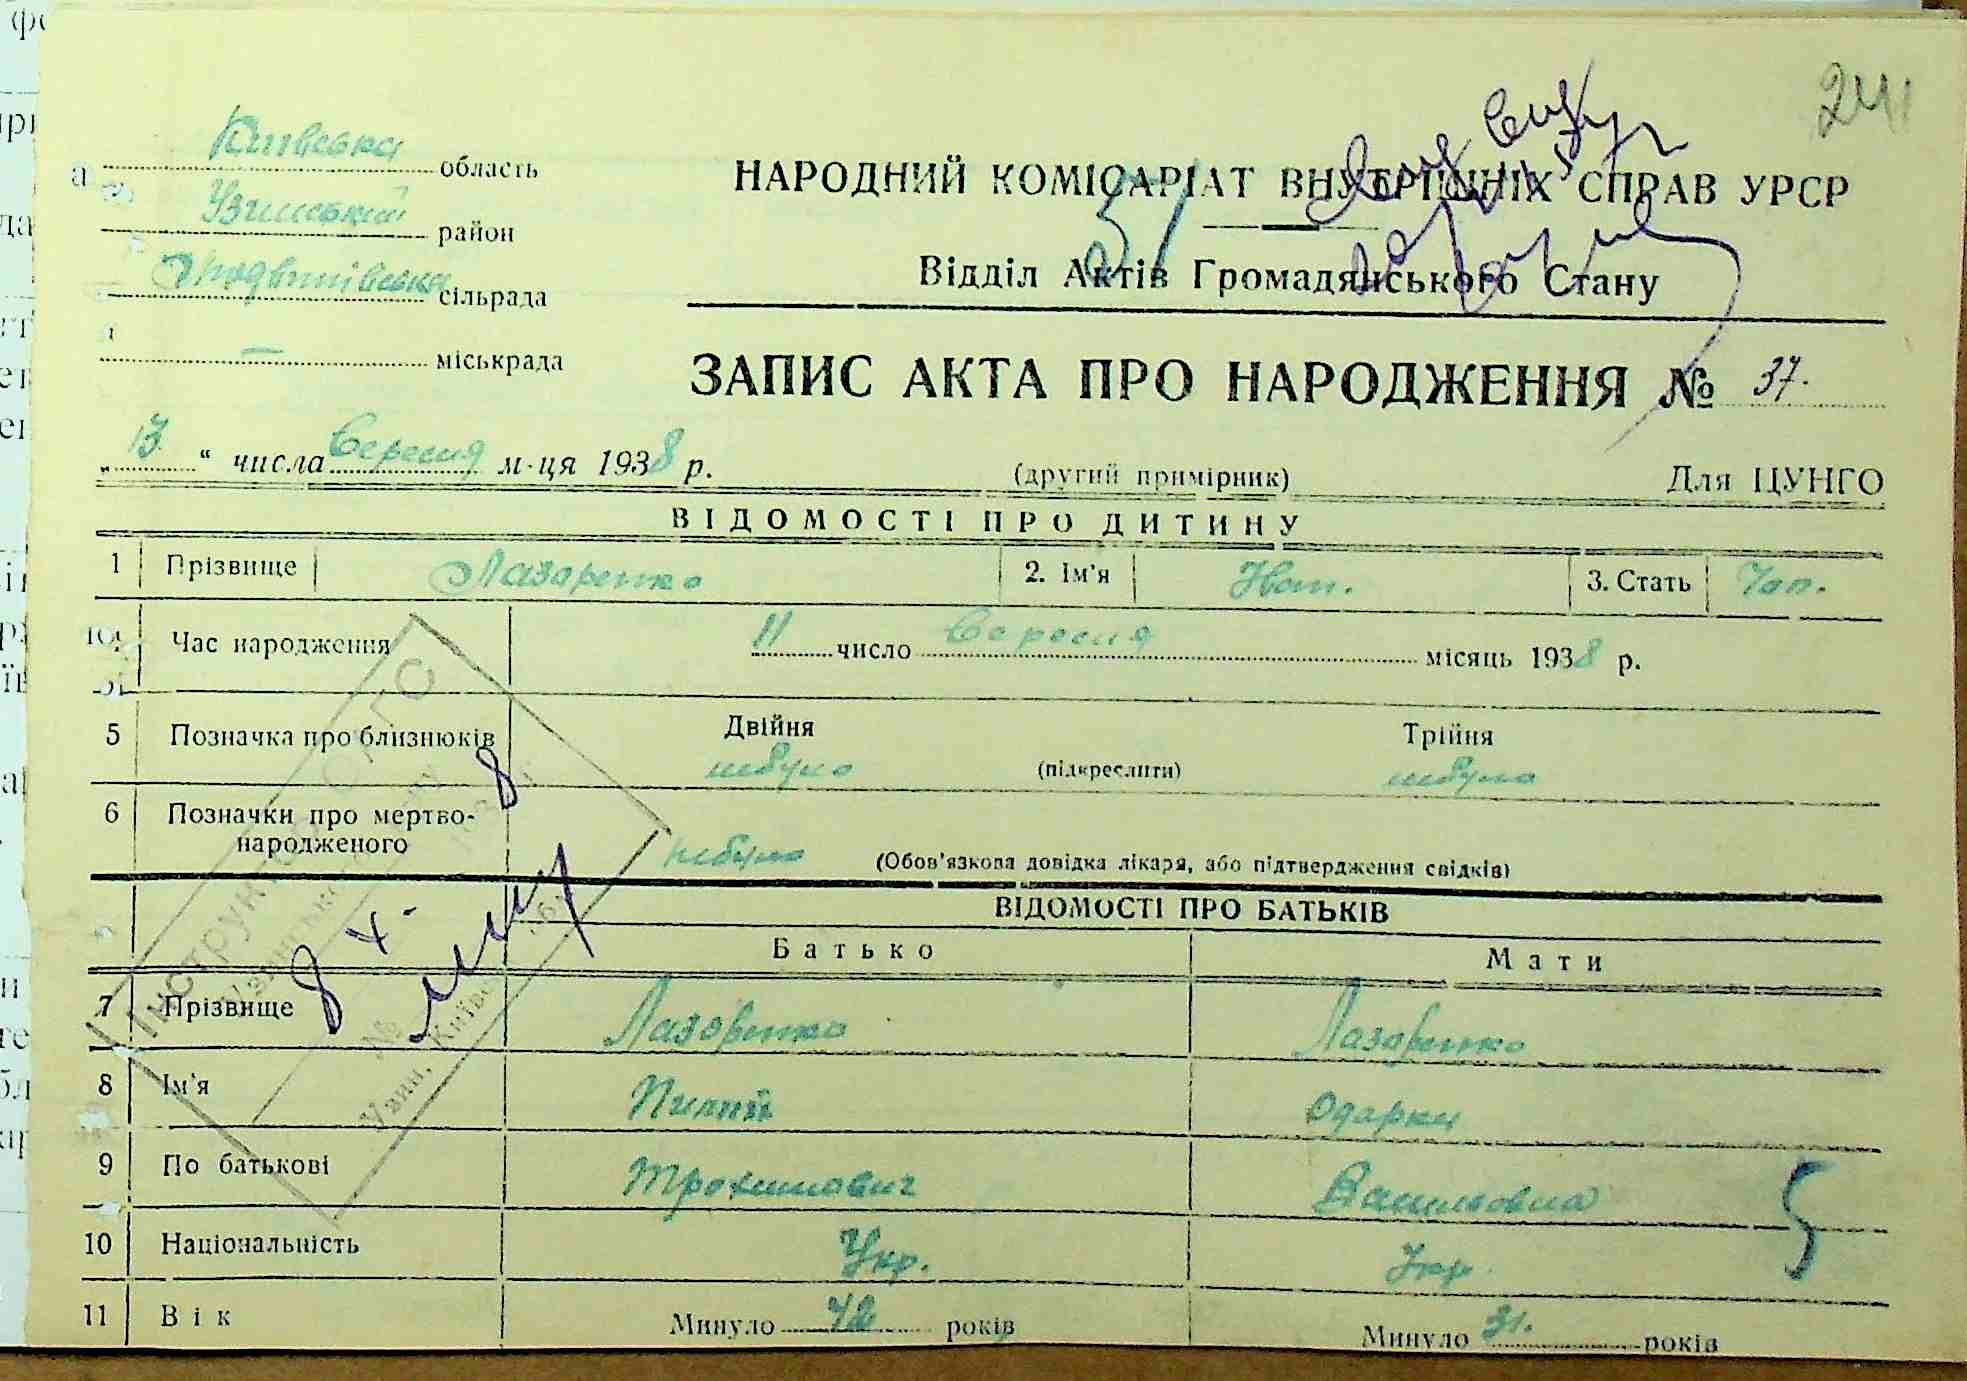 241
Київська область
Узинський район
сільрада
— міськрада
НАРОДНИЙ КОМІСАРІАТ ВНУТРІШНІХ СПРАВ УРСР
Відділ Актів Громадянського Стану
ЗАПИС АКТА ПРО НАРОДЖЕННЯ № 37.
„13“ числа Вересня м-ця 1938 р.
(другий примірник)
Для ЦУНГО
ВІДОМОСТІ ПРО ДИТИНУ
1 Прізвище Лазаренко 2. Ім'я Іван. 3. Стать Чол.
Час народження 11 число Вересня місяць 1938 р.
5 Позначка про близнюків Двійня небуло (підкреслити) Трійня небуло
6 Позначки про мертво-
народженого небуло (Обов'язкова довідка лікаря, або підтвердження свідків)
ВІДОМОСТІ ПРО БАТЬКІВ
Батько Мати
7 Прізвище Лазаренко Лазаренко
8 Ім'я Пилип Одарка
9 По батькові Трохимович Василовна
10 Національність Укр. Укр
11 Вік Минуло 42 років Минуло 31. років
5